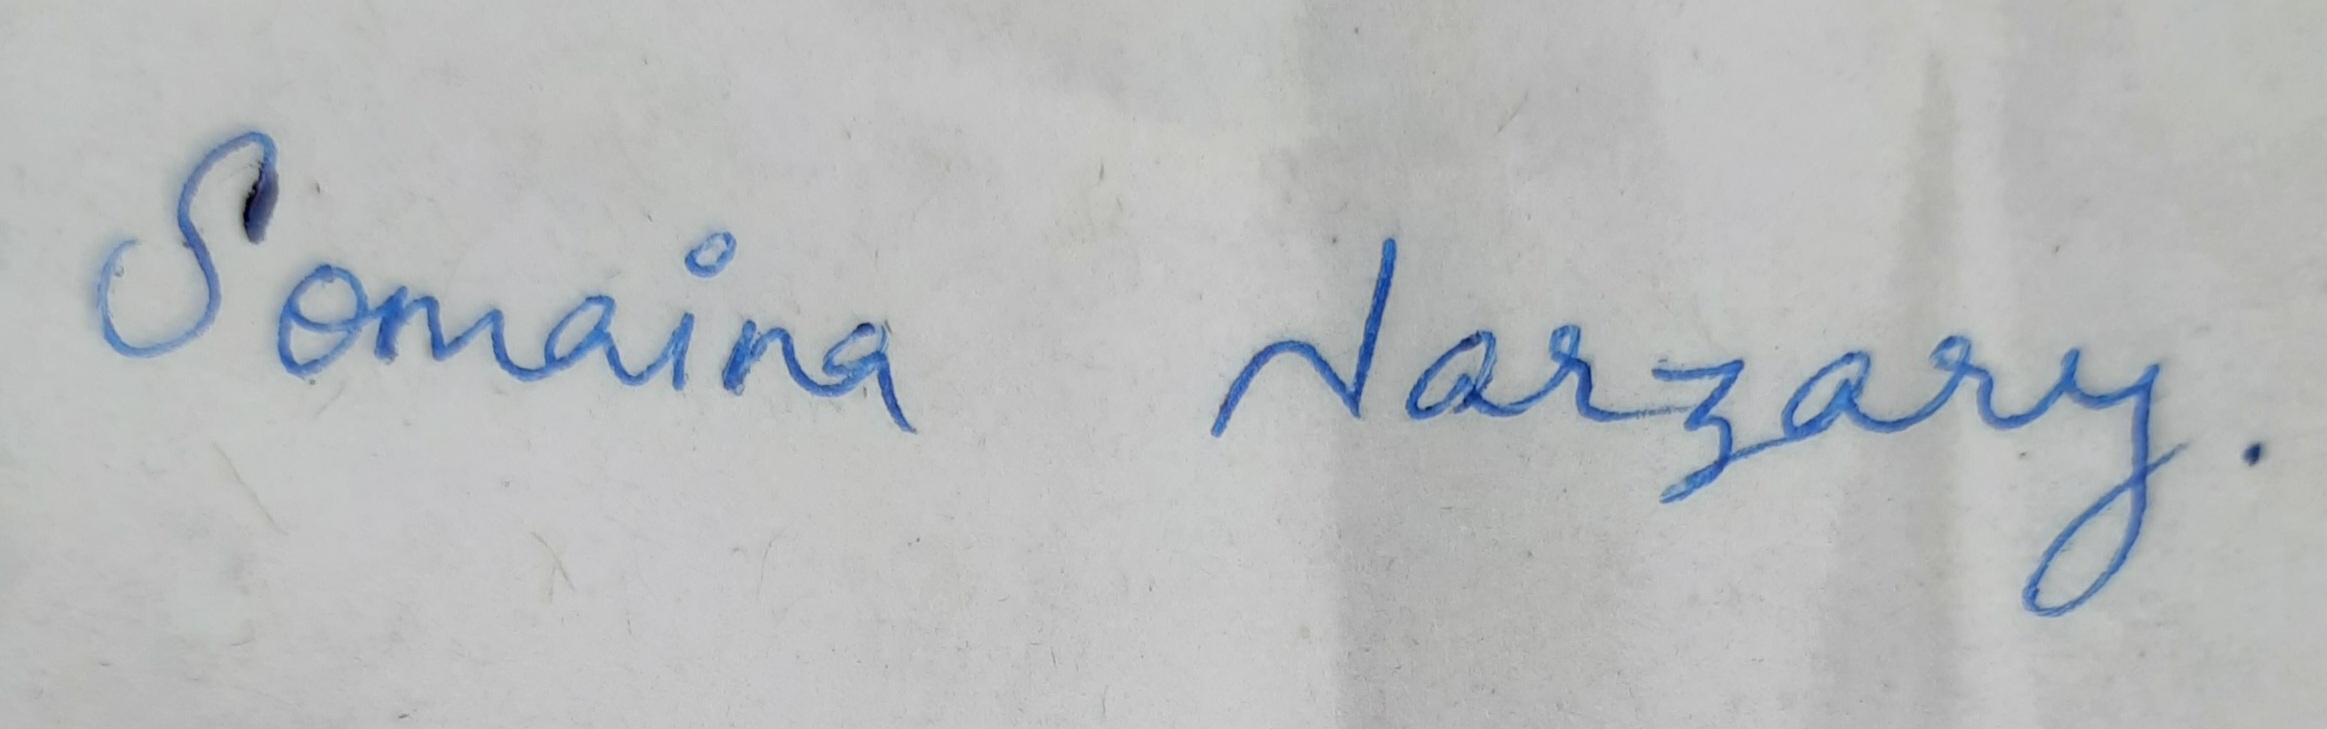 Somaina Narzary.